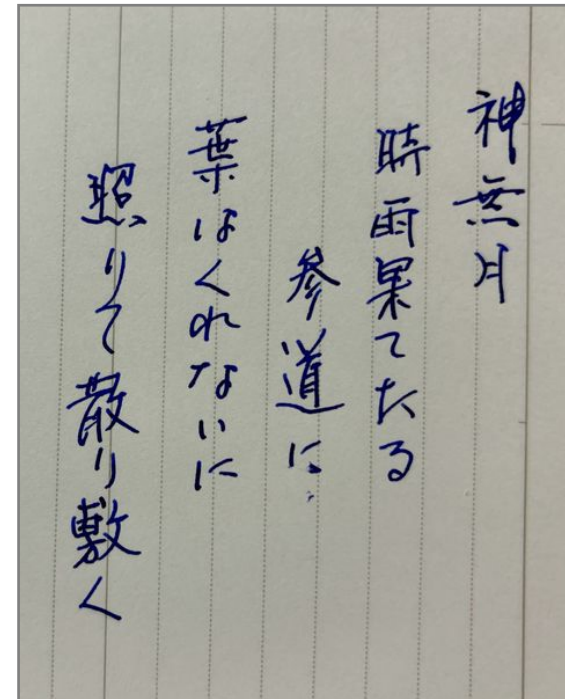 神無月
時雨果てたる
参道に
葉はくれないに
照りて散り敷く